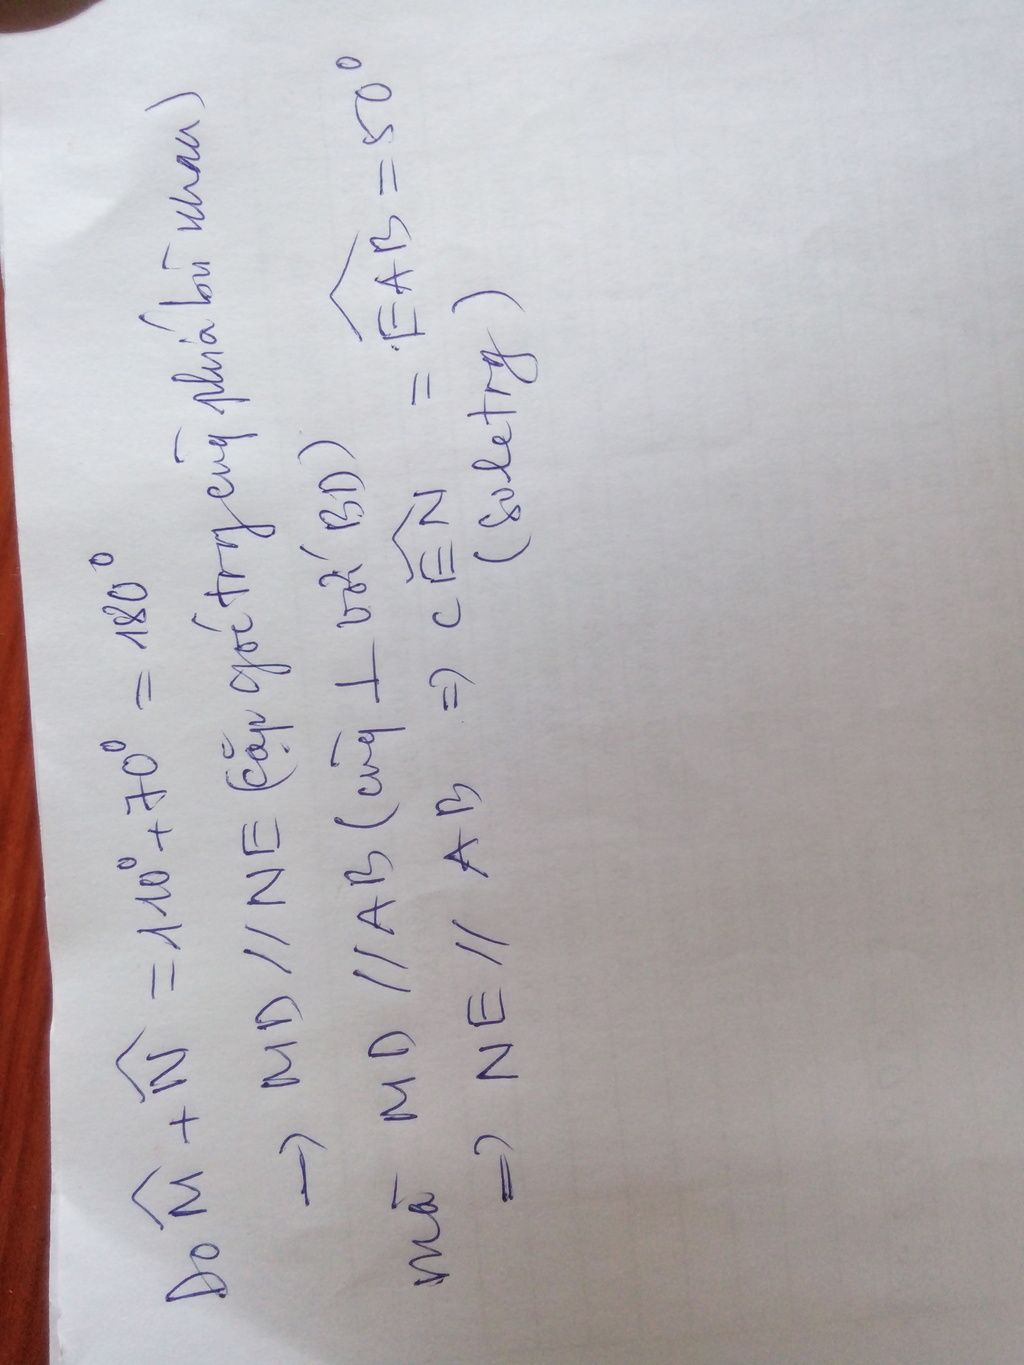 Do M̂ + N̂ = 110° + 70° = 180°
→ MD // NE (cặp góc trg cùng phía bù nhau)
mà MD // AB (cùng ⊥ với BD)
⇒ NE // AB ⇒ CÊN = EAB = 50°
(sole trg)